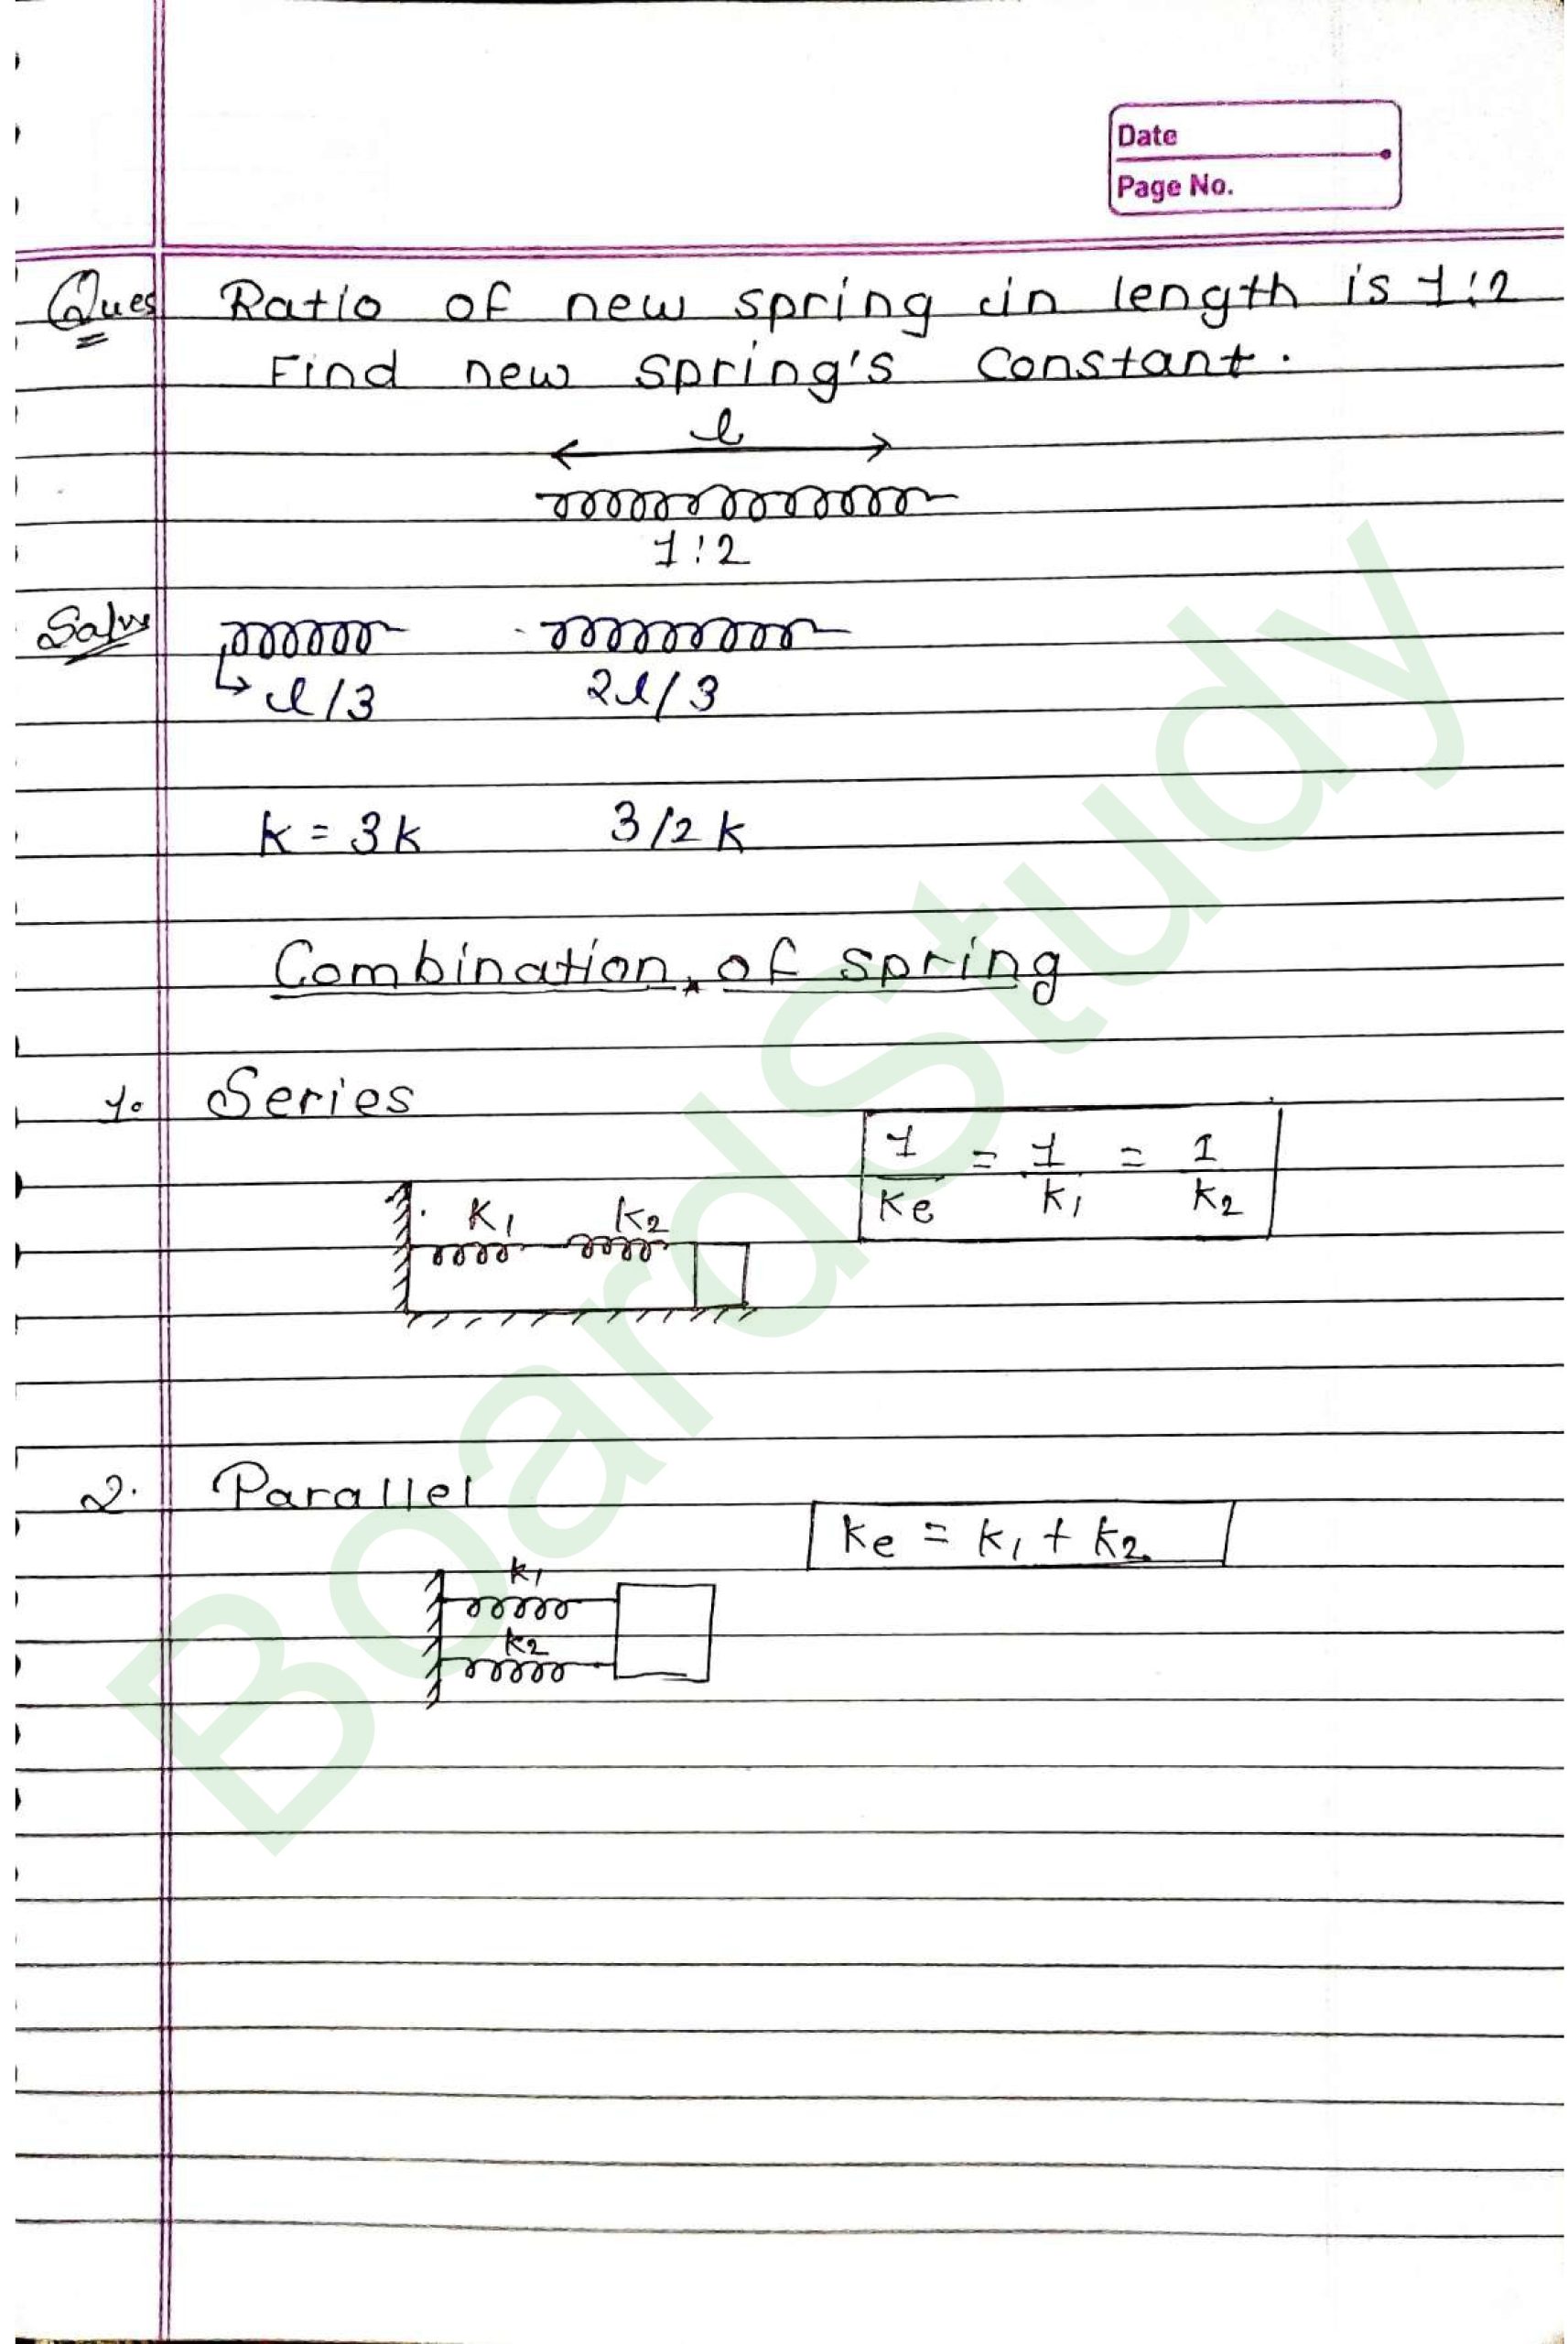 Date
Page No.
Ques Ratio of new spring in length is 1:2
Find new spring's constant.
l
1:2
Soln
l/3 2l/3
k = 3k 3/2 k
Combination of spring
1. Series
1/ke = 1/k1 = 1/k2
K1 k2
2. Parallel
ke = k1 + k2
k1
k2
BoardStudy